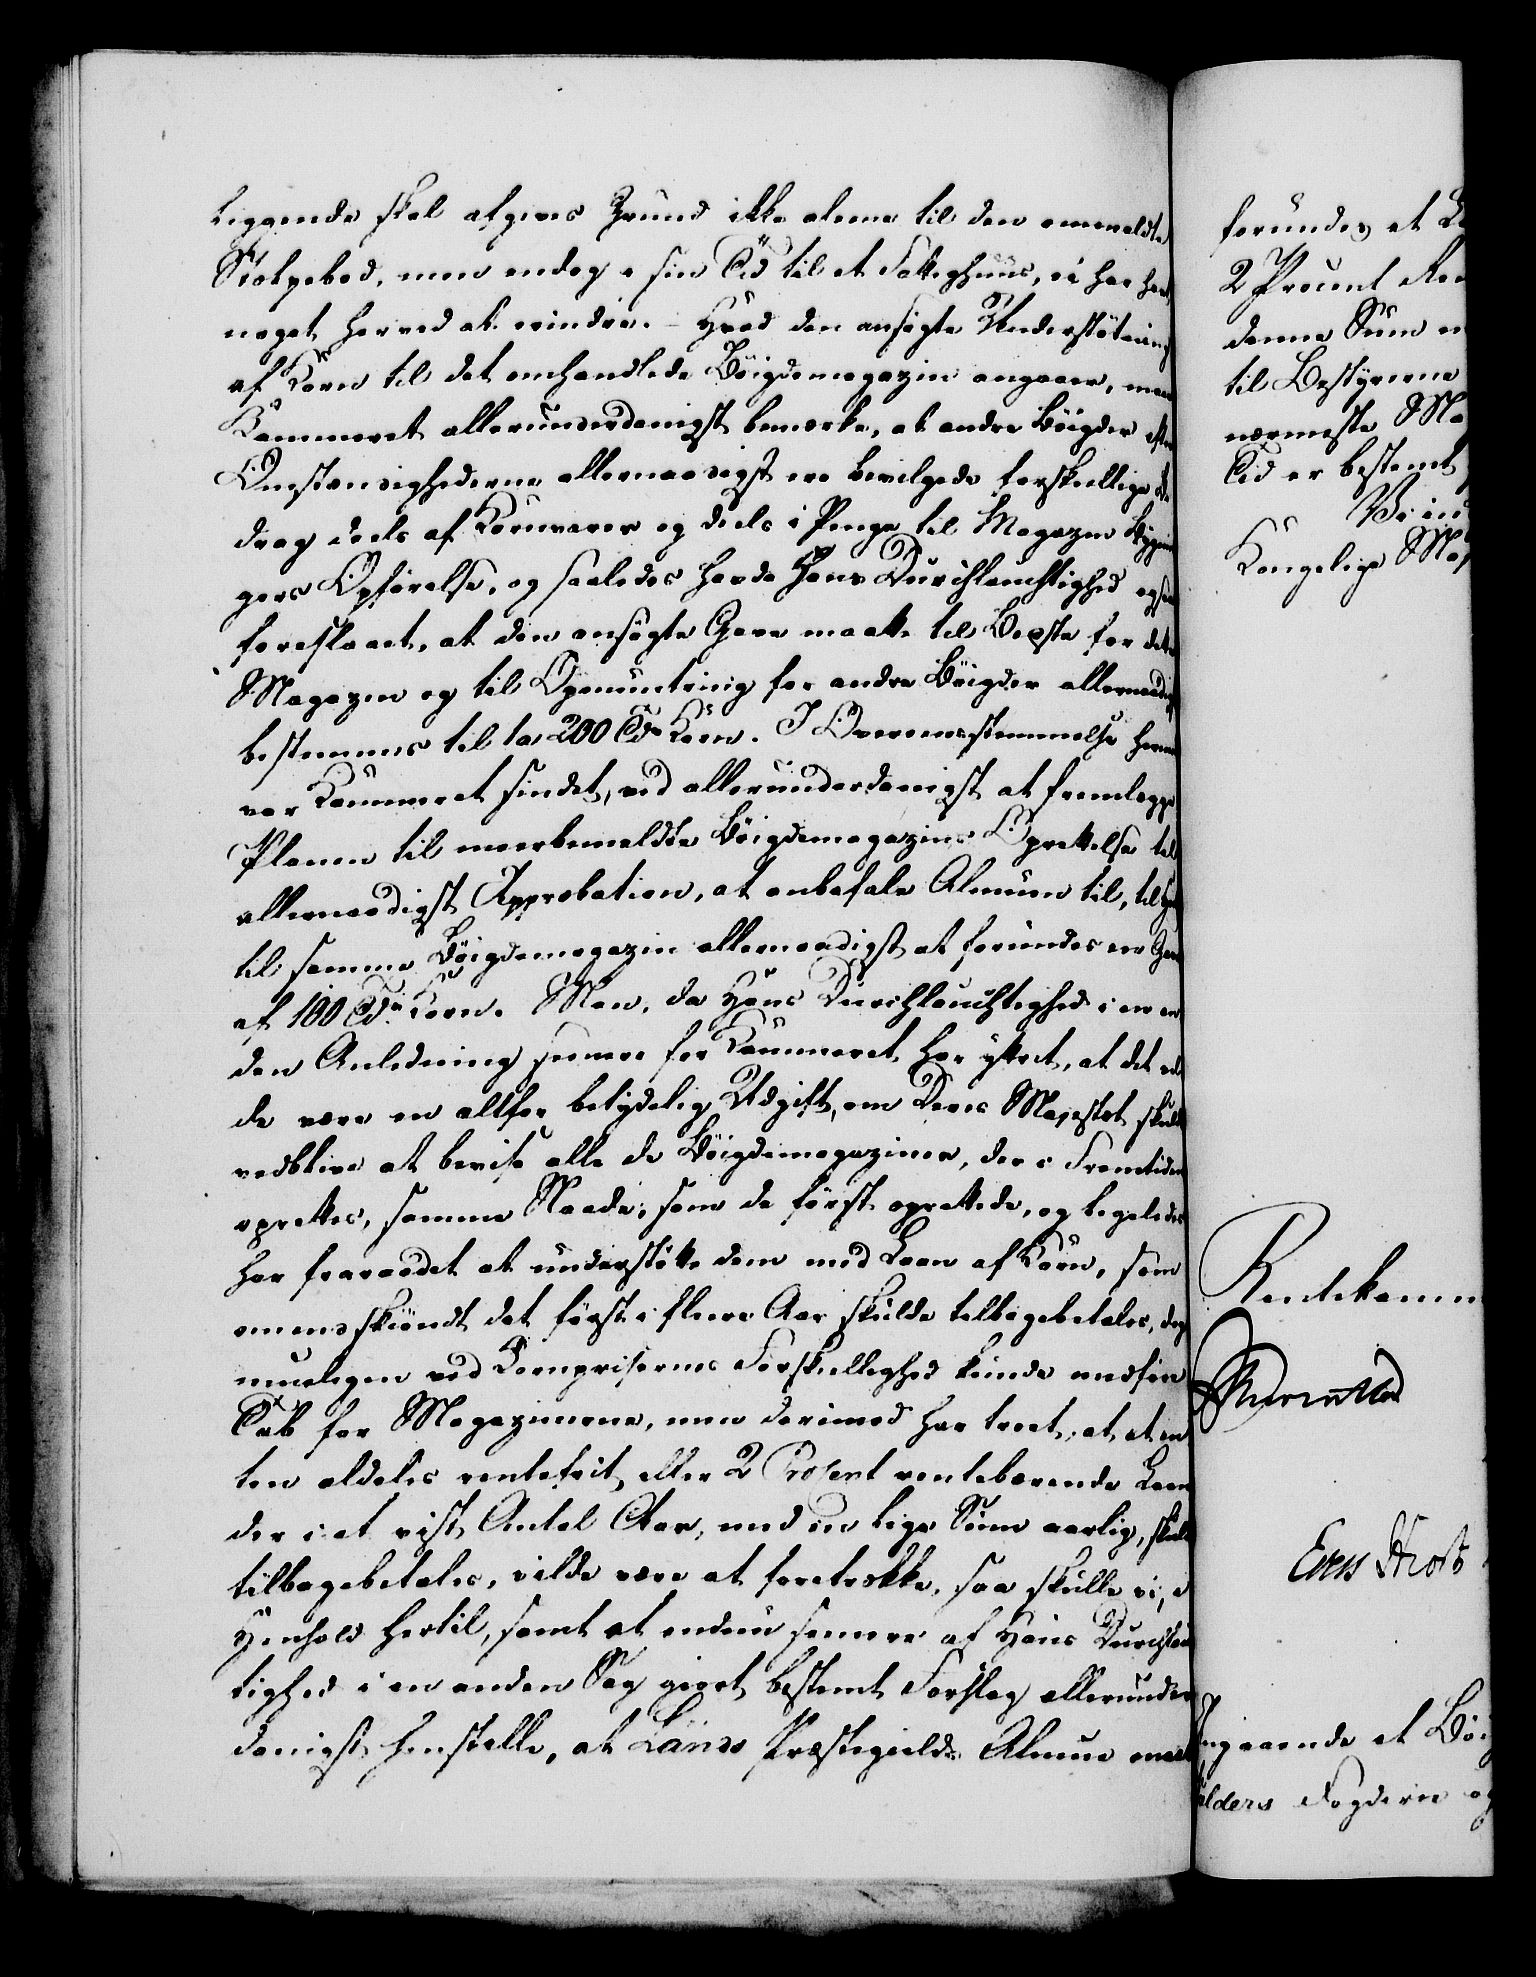 liggende skal afgives Grund ikke alene til den ommeldte
Stolpebod, men endog i sin Tid til et Fattighuus, ei har havt
noget herved at erindre. – Hvad den ansøgte Understøttning
af Korn til det omhandlede Böigdemagazin angaaer, maae
Kammeret allerunderdanigst bemærke, at andre Böigder efter
Omstændighederne allernaadigst ere bevilgede forskiellige Bi-
drag deels af Kornvarer og deels i Penge til Magazin Bygnin-
gers Opførelse, og saaledes havde Hans Durchlauchtighed ogsaa
foreslaaet, at den ansøgte Gave maatte til Beste for dette
Magazin og til Opmuntring for andre Böigder allernaadigst
bestemmes til 200 Tdr Korn. I Overensstemmelse hermed
var Kammeret sindet, ved allerunderdanigst at fremlegge
Planen til meerbemeldte Böigdemagazins Oprettelse til
allernaadigst Approbation, at anbefale Almuen til,
til samme Böigdemagazin allernaadigst at forundes en Gave
af 100 Tdr Korn. Men, da Hans Durchlauchtighed i en an-
den Anledning senere for Kammeret har yttret, at det vil-
de være en altfor betydelig Udgift, om Deres Majestæt skulde
vedblive at bevise alle de Böigdemagaziner, der i Fremtiden
oprettes, samme Naade, som de först oprettede, og ligeledes
har fraraadet at understøtte dem med Laan af Korn, som
omendskiöndt det först i flere Aar skulde tilbagebetales, dog
mueligen ved Kornprisernes Forskiellighed kunde medføre
Tab for Magazinerne, men derimod har troet, at et en-
ten aldeles rentefrit eller 2 Procent rentebærende Laan
der i et vist Antal Aar, med en lige Sum aarlig, skulde
tilbagebetales, vilde være at foretrække, saa skulle vi, i
Henhold hertil, samt et endnu senere af Hans Durchlauch-
tighed i en anden Sag giort bestemt Forslag allerunder-
danigst henstille, at Præstegields Almue maatte
forundes et
2 Procent
denne Sum
til Bestyrerne
nærmeste
Tid er bestemt
Kongelige
Rentekamm
ngaaende et Böig
alders Fogderie og